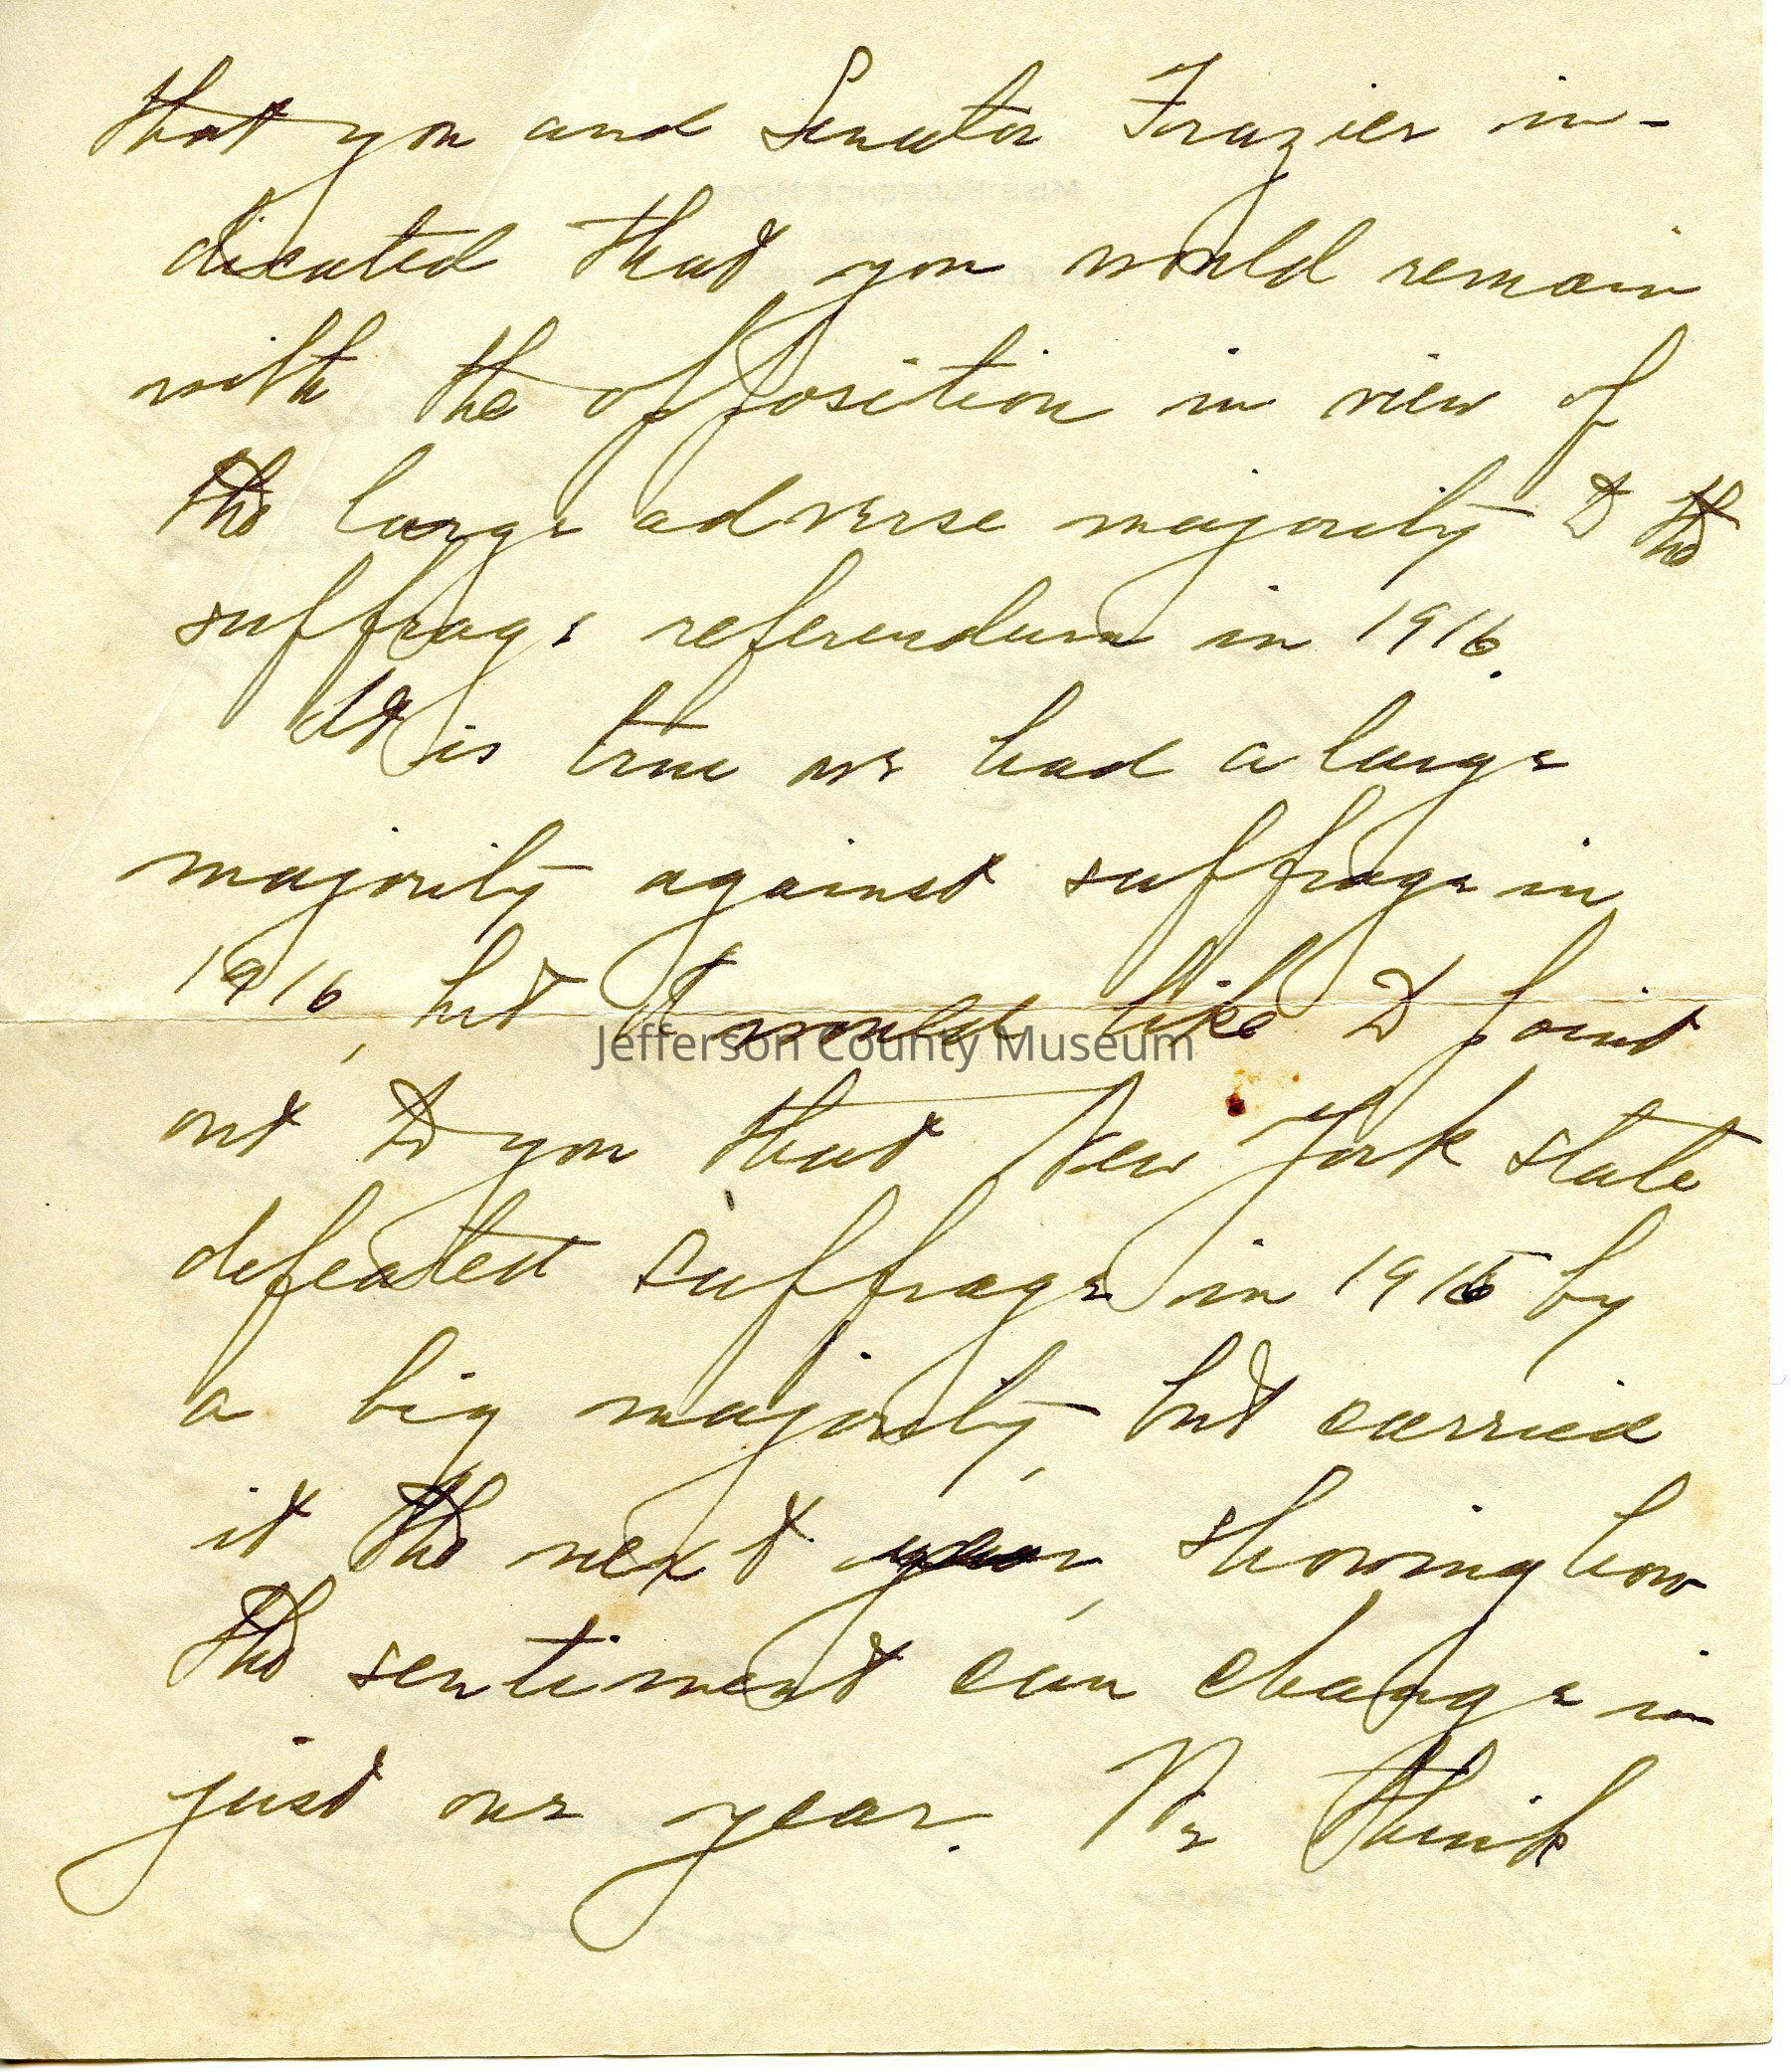 that you and Senator Frazier in-
dicated that you would remain
with the opposition in view of
the large adverse majority to the
suffrage referendum in 1916.
It is true we had a large
majority against suffrage in
1916, but I would like to point
Jefferson County Museum
out to you that New York state
defeated suffrage in 1915 by
a big majority, but carried
it the next year, showing how
the sentiment can change in
just one year. We think